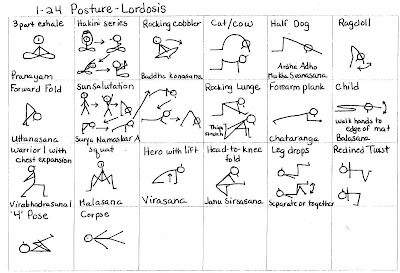 1-24 Posture-Lordosis
3 part exhale
Pranayam
Hakini series
Rocking cobbler
Buddha konasana
Cat/cow
Half Dog
Ardha Adho
Mukha Svanasana
Ragdoll
Forward Fold
Uttanasana
Sun Salutation
Surya Namaskar A
Rocking Lunge
Thigh
Forearm plank
Chataranga
Child
walk hands to
edge of mat
Balasana
Warrior 1 with
chest expansion
Virabhadrasana 1
Squat
Malasana
Hero with lift
Virasana
Head-to-knee
fold
Janu Sirsasana
Leg drops
Separate or together
Reclined Twist
"4" Pose
Corpse